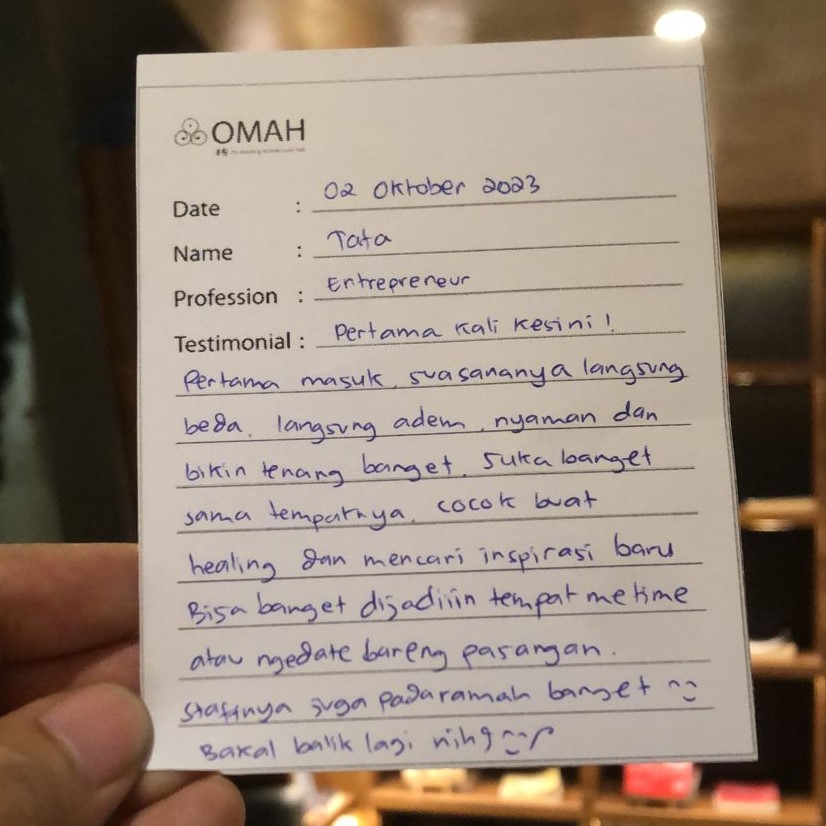 OMAH
Date : 02 Oktober 2023
Name : Tata
Profession : Entrepreneur
Testimonial : Pertama kali kesini!
Pertama masuk, suasananya langsung
beda, langsung adem, nyaman dan
bikin tenang banget. Suka banget
sama tempatnya, cocok buat
healing dan mencari inspirasi baru
Bisa banget dijadiiin tempat metime
atau ngedate bareng pasangan.
staffnya juga pada ramah banget
Bakal balik lagi nihh